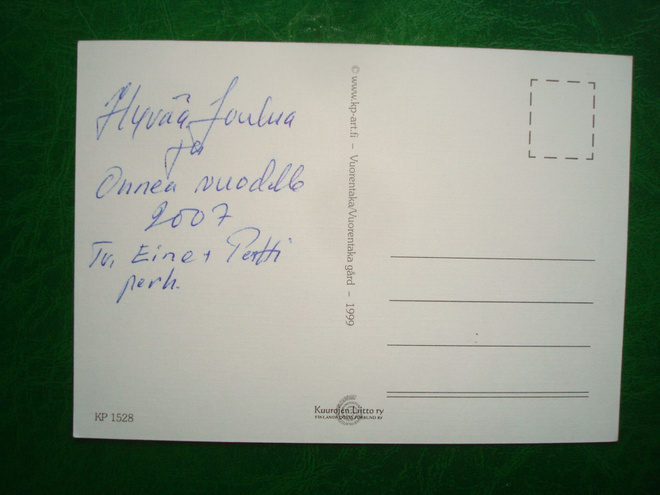 Hyvää Joulua
ja
Onnea vuodelle
2007
Tv, Eine + Pertti
perh.
KP 1528
© www.kp-art.fi – Vuorentaka/Vuorentaka gård – 1999
Kuurojen Liitto ry